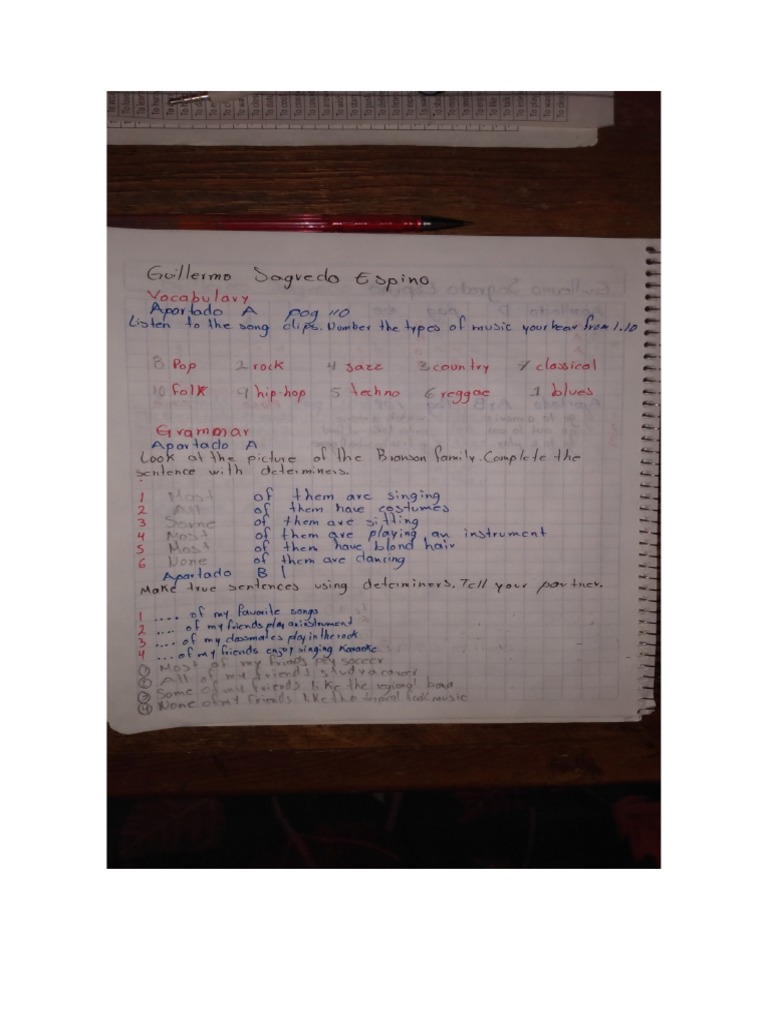 Guillermo Sagredo Espino
Vocabulary
Apartado A pag 110
Listen to the song clips. Number the types of music your hear from 1.10
8 Pop 2 rock 4 jazz 3 country 7 classical
10 folk 9 hip-hop 5 techno 6 reggae 1 blues
Grammar
Apartado A
Look at the picture of the Branson family. Complete the
sentence with determiners.
1 Most of them are singing
2 All of them have costumes
3 Some of them are sitting
4 Most of them are playing an instrument
5 Most of them have blond hair
6 None of them are dancing
Apartado B
Make true sentences using determiners. Tell your partner.
1 .... of my favorite songs
2 .... of my friends play an instrument
3 .... of my classmates play in the rock
4 ...of my friends enjoy singing Karaoke
1 Most of my friends play soccer
2 All of my friends study a career
3 Some of my friends like the regional band
4 None of my friends like the rock music